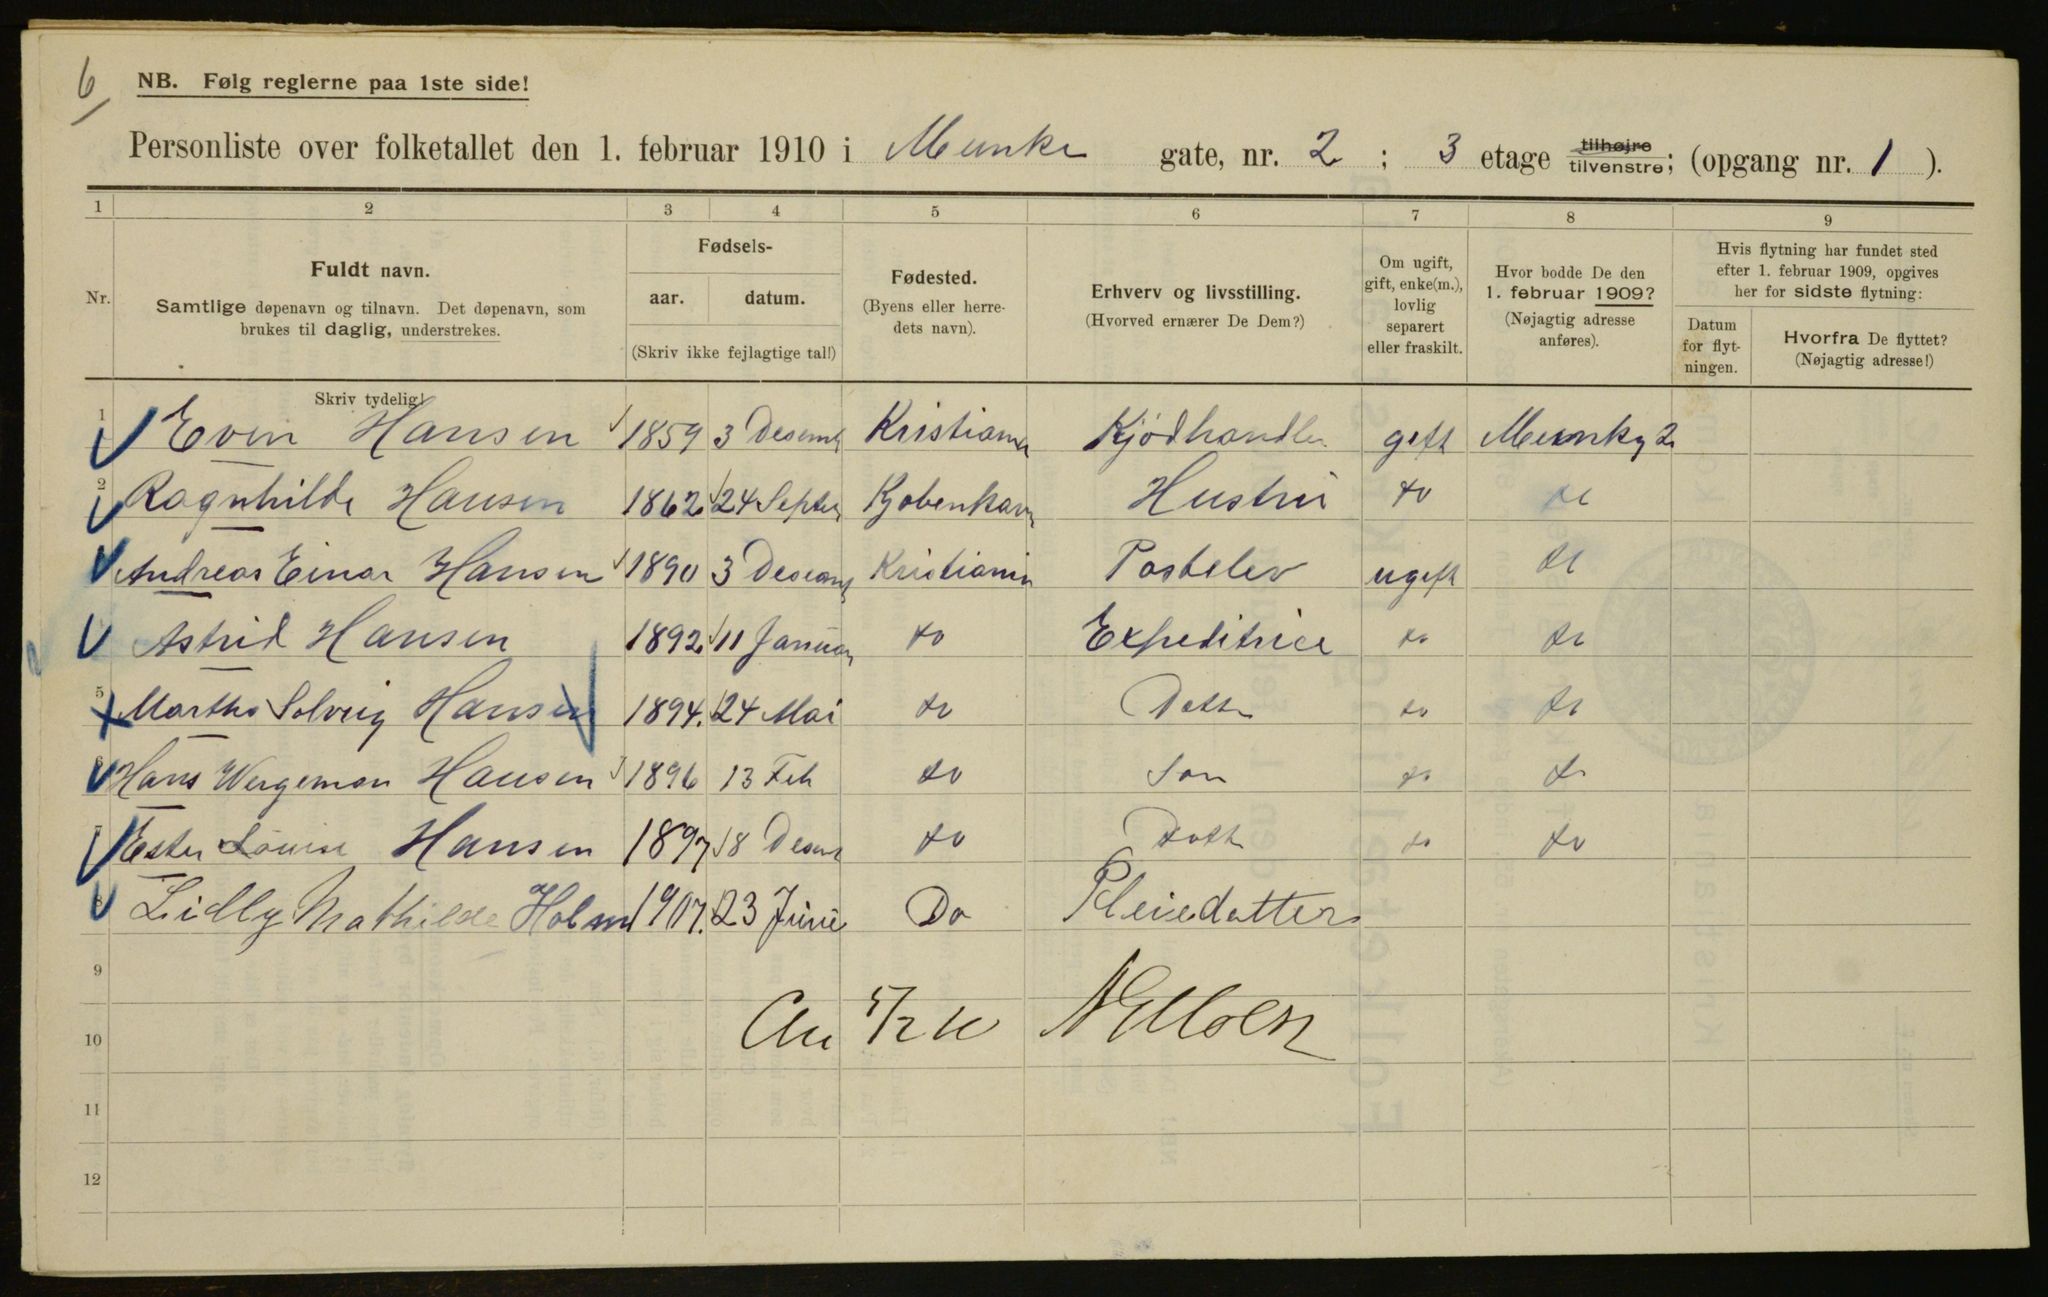 6
NB. Følg reglerne paa 1ste side!
Personliste over folketallet den 1. februar 1910 i Munke gate, nr. 2 ; 3 etage tilhøjre tilvenstre; (opgang nr. 1 ).
1 2 3 4 5 6 7 8 9
Nr.
Fuldt navn.
Samtlige døpenavn og tilnavn. Det døpenavn, som
brukes til daglig, understrekes.
Fødsels-
aar. datum.
(Skriv ikke fejlagtige tal!)
Fødested.
(Byens eller herre-
dets navn).
Erhverv og livsstilling.
(Hvorved ernærer De Dem?)
Om ugift,
gift, enke(m.),
lovlig
separert
eller fraskilt.
Hvor bodde De den
1. februar 1909?
(Nøjagtig adresse
anføres).
Hvis flytning har fundet sted
efter 1. februar 1909, opgives
her for sidste flytning:
Datum
for flyt-
ningen.
Hvorfra De flyttet?
(Nøjagtig adresse!)
Skriv tydelig!
1 Even Hansen 1859 3 Desemb Kristiania Kjødhandler gift Munkg 2
2 Ragnhilde Hansen 1862 24 Septem Kjobenhavn Hustru do do
Andreas Einar Hansen 1890 3 Desemb Kristiania Postelev ugift do
Astrid Hansen 1892 11 Januar do Expeditrice do do
5 Martha Solveig Hansen 1894. 24 Mai do Datter do do
6 Hans Wergeman Hansen 1896 13 Feb do Son do do
7 Ester Louise Hansen 1897 18 Desem do Datt do do
8 Lidlly Mathilde Holm 1907. 23 Juni Do Pleiedatter
9
10 An 5/2 10 N Ellsen
11
12